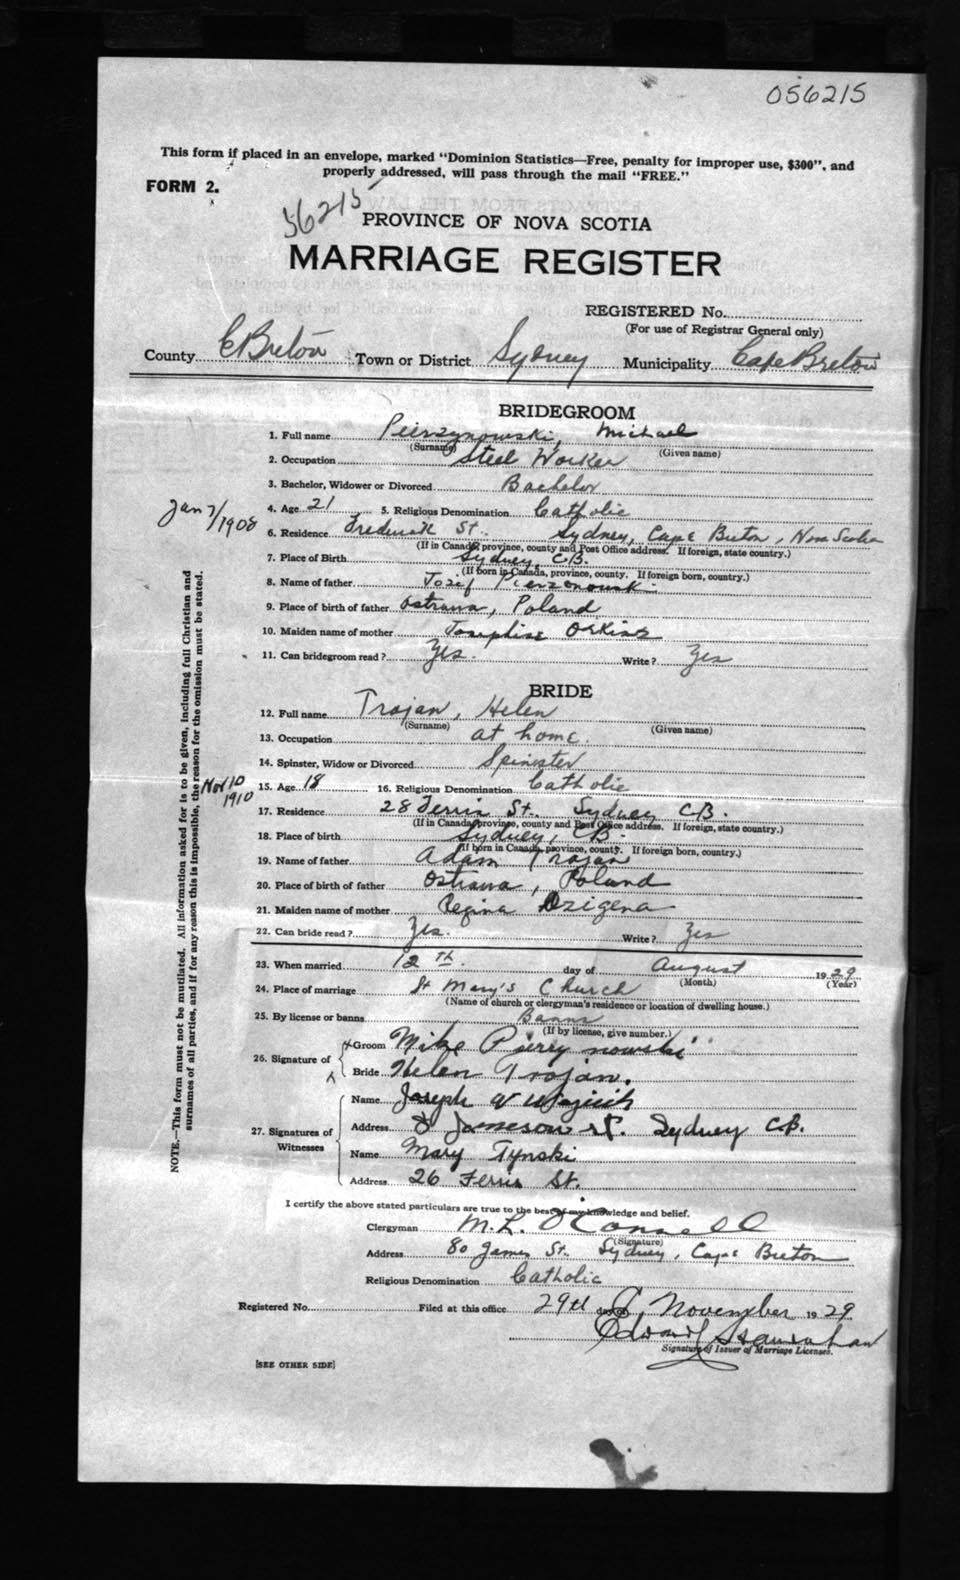 056215
This form if placed in an envelope, marked "Dominion Statistics—Free, penalty for improper use, $300", and
properly addressed, will pass through the mail "FREE."
FORM 2.
56215
PROVINCE OF NOVA SCOTIA
MARRIAGE REGISTER
REGISTERED No.
(For use of Registrar General only)
County C Breton Town or District Sydney Municipality Cape Breton
BRIDEGROOM
1. Full name Pierzynowski, Michael
(Surname) (Given name)
2. Occupation Steel Worker
3. Bachelor, Widower or Divorced Bachelor
Jan 7/1908
4. Age 21 5. Religious Denomination Catholic
6. Residence Frederick St. Sydney, Cape Breton, Nova Scotia
(If in Canada, province, county and Post Office address. If foreign, state country.)
7. Place of Birth Sydney, C.B.
(If born in Canada, province, county. If foreign born, country.)
8. Name of father Jozif Pierzonowski
9. Place of birth of father Ostrawa, Poland
10. Maiden name of mother Josephine
11. Can bridegroom read? Yes. Write? Yes
BRIDE
12. Full name Trojan, Helen
(Surname) (Given name)
13. Occupation at home.
14. Spinster, Widow or Divorced Spinster
Nov 10
1910
15. Age 18 16. Religious Denomination Catholic
17. Residence 28 Ferris St. Sydney C.B.
(If in Canada, province, county and Post Office address. If foreign, state country.)
18. Place of birth Sydney, CB.
(If born in Canada, province, county. If foreign born, country.)
19. Name of father Adam Trojan
20. Place of birth of father Ostrawa, Poland
21. Maiden name of mother Regina Dzigena
22. Can bride read? Yes. Write? Yes
23. When married 12th. day of August 1929
(Month) (Year)
24. Place of marriage St Mary's Church
(Name of church or clergyman's residence or location of dwelling house.)
25. By license or banns Banns
(If by license, give number.)
26. Signature of
Groom Mike Pierzynowski
Bride Helen Trojan.
27. Signatures of
Witnesses
Name Joseph
Address Jameson st. Sydney C.B.
Name Mary Tynski
Address 26 Ferris St.
I certify the above stated particulars are true to the best of my knowledge and belief.
Clergyman M. L. O'Connell
(Signature)
Address 80 James St. Sydney, Cape Breton
Religious Denomination Catholic
Registered No. Filed at this office 29th day of November 1929
Edward
Signature of Issuer of Marriage Licenses.
[SEE OTHER SIDE]
NOTE.—This form must not be mutilated. All information asked for is to be given, including full Christian and
surnames of all parties, and if for any reason this is impossible, the reason for the omission must be stated.